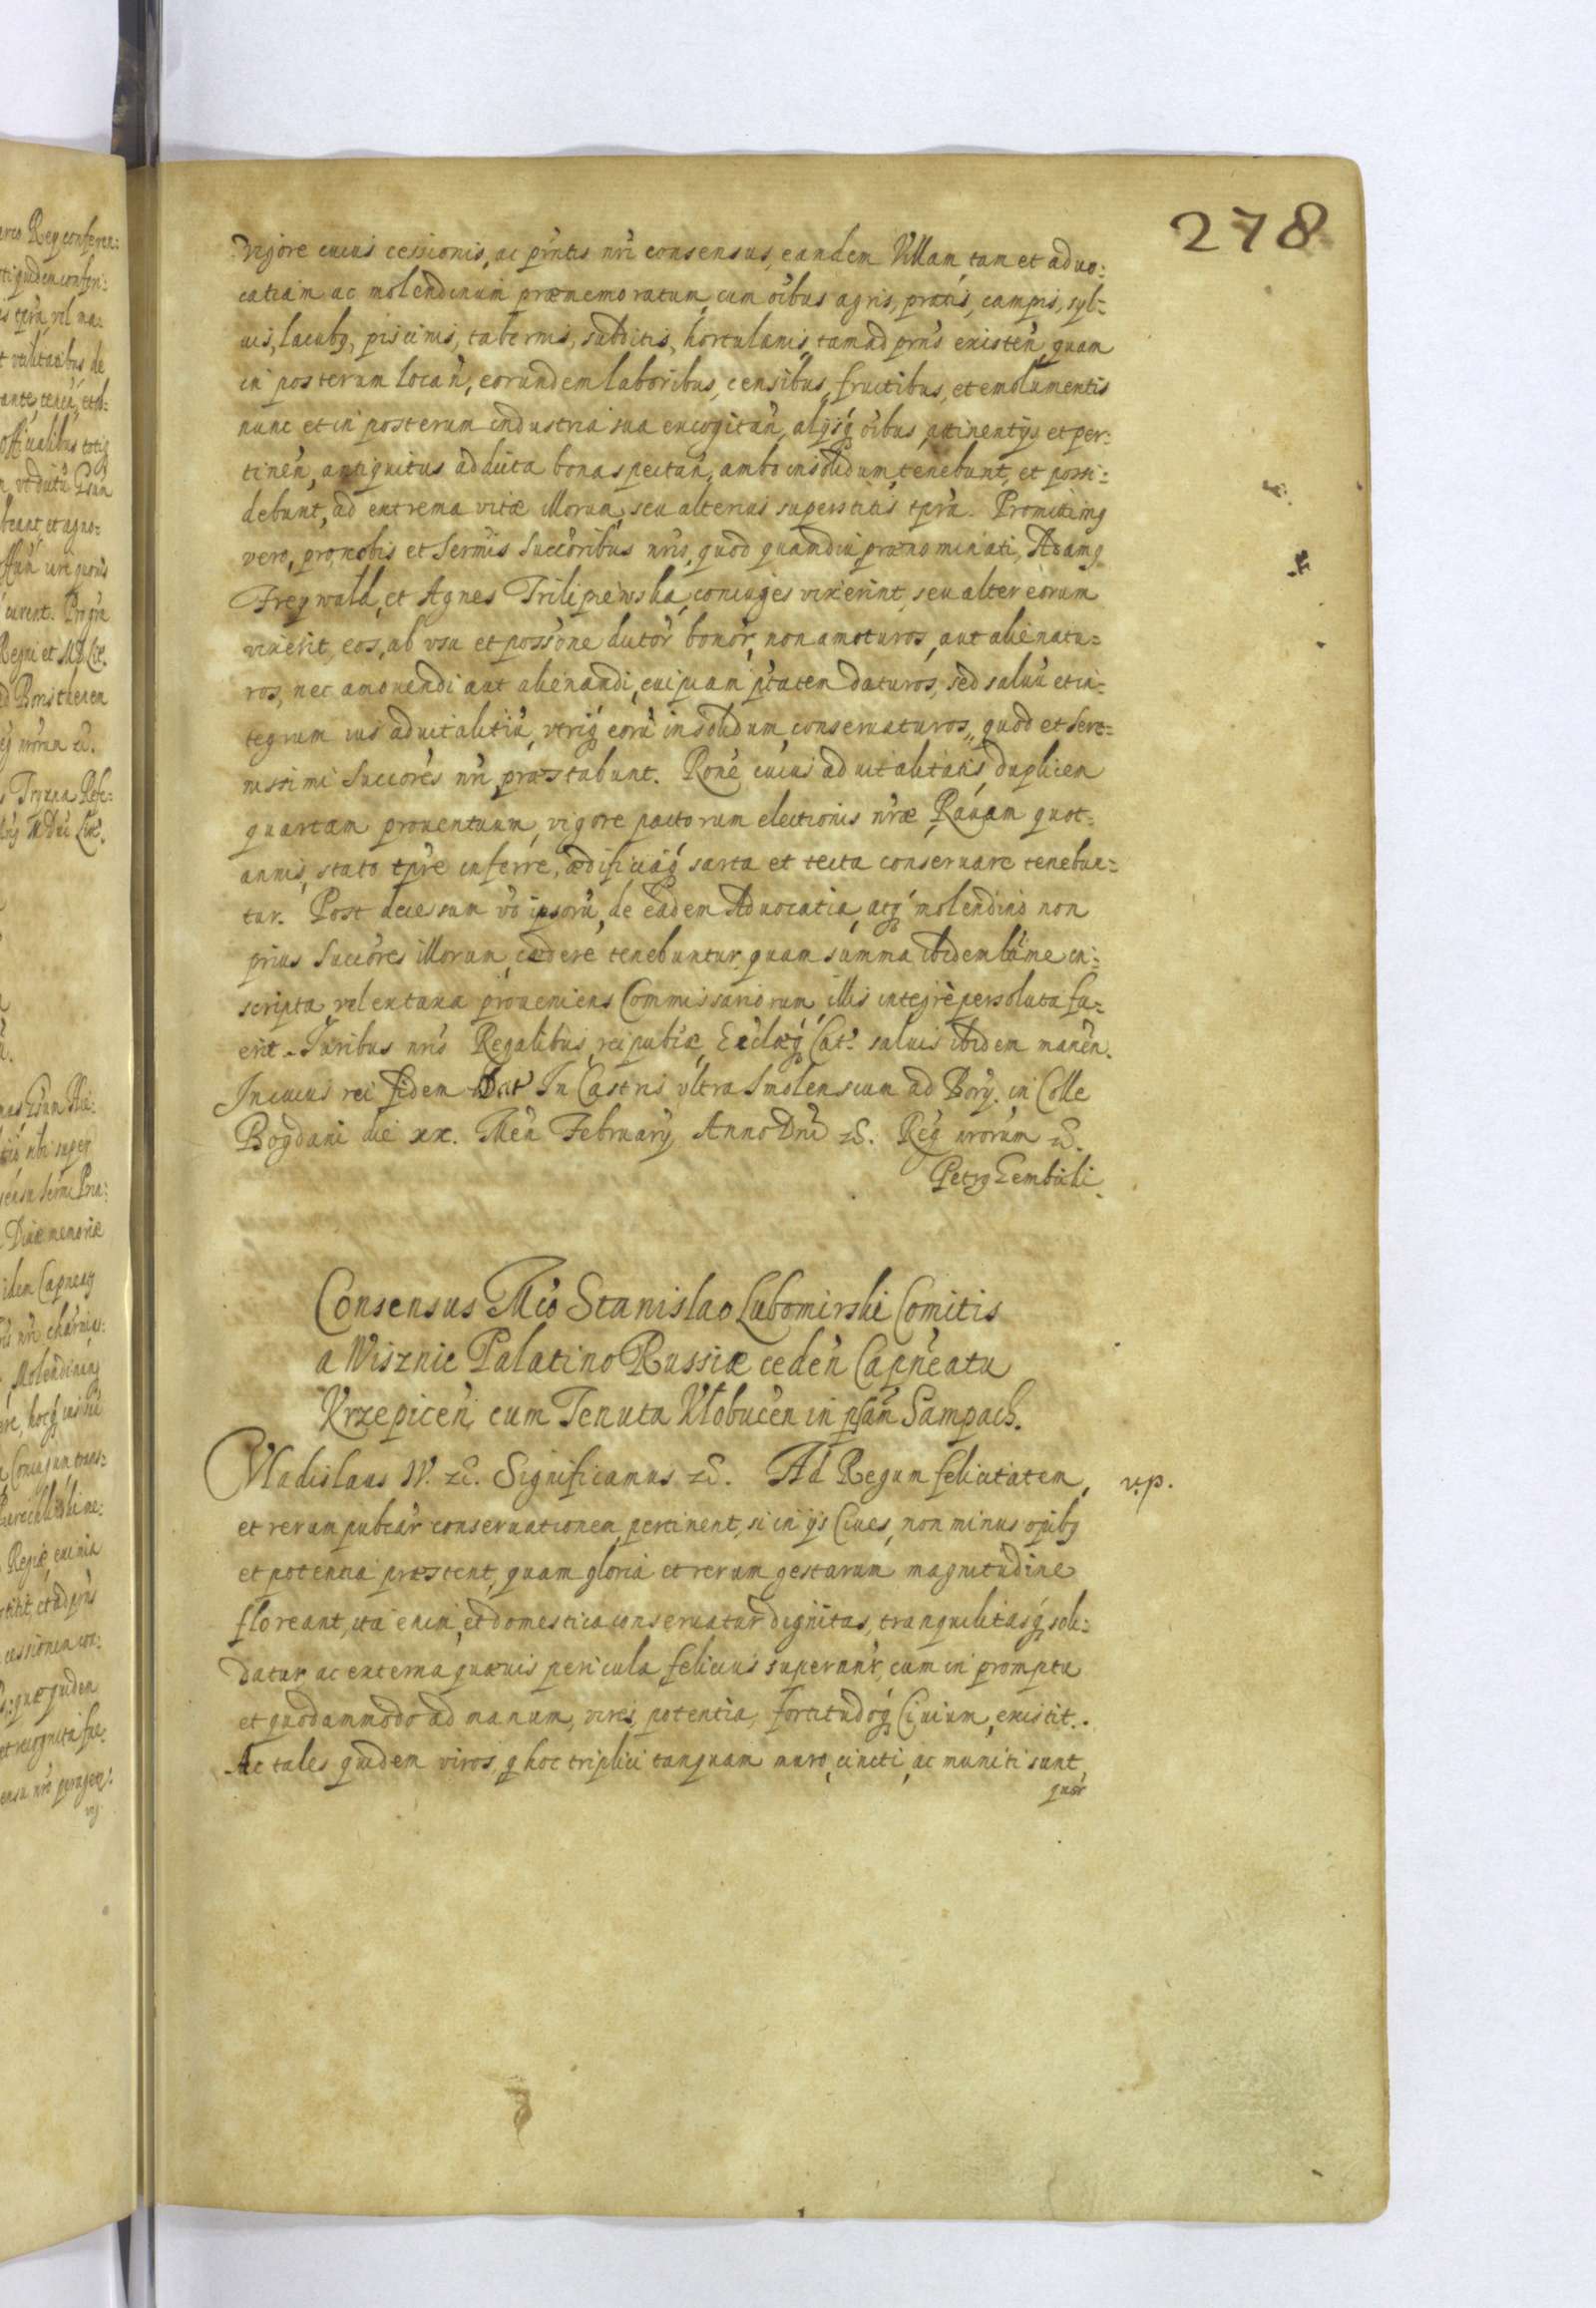 278
vigore cuius cessionis, ac pñtis nri consensus, eandem Villam, tam et aduo:
catiam ac molendinum prænemoratum, cum oibus agris, pratis, campis, syl:
uis, lacubꝫ, piscinis, tabernis, subditis, hortulanis, tam ad prns existeñ, quam
in posterum locañ, eorundem laboribus, censibus, fructibus, et emolumentis
nunc et in posterum industria sua excogitañ, alysq́ oibus, attinentijs et per:
tineñ, antiquitus ad dicta bona spectañ, ambo in solidum, tenebunt, et possi:
debunt, ad extrema vitæ illorum, seu alterius superstitis tpra. Promittimꝫ
vero, pro nobis et Sermis Succoribus nris, quod quamdiu prænominati, Adamꝫ
Freywald, et Agnes Trilipiewska, coniuges vixerint, seu alter eorum
vixerit, eos, ab vsu et possone dictor̃ bonor̃, non amoturos, aut alienatu:
ros, nec amouendi aut alienandi, cuipiam ptatem daturos, sed saluũ et in:
tegrum ius aduitalitiũ, vtriq́ eorũ in solidum, conseruaturos, quod et Sere:
nissimi Succores nri, præstabunt. Rone cuius aduitalitatis, duplicem
quartam prouentuum, vigore pactorum electionis nræ, Rauam quot:
annis, stato tpre inferre, ædificiaq́ sarta et tecta conseruare tenebun:
tur. Post decessum vo ipsorũ, de eadem Aduocatia, atq́ molendino non
prius Succores illorum, cædere tenebuntur, quam summa ibidem lttime in:
scripta, vel ex taxa proueniens Commissariorum, illis integrè persoluta fu:
erit. Iuribus nris Regalibus, reipubcæ, Eccliæq́ Cat. saluis ibidem maneñ.
In cuius rei fidem Dat In Castris vltra Smolenscum ad Bory. in Colle
Bogdani die xx. Meñ February, Anno Dñi &. Reg nrorum &.
Petrꝫ Gembicki.
Consensus Mco Stanislao Lubomirski Comitis
a Wisznic Palatino Russiæ cedeñ Capneatu
Krzepiceñ cum Tenuta Kłobuceñ in psañ Sampach.
Vladislaus IV. &. Significamus &. Ad Regum felicitatem, v.p.
et rerumpubcar̃ conseruationem, pertinent, si in ijs Ciues, non minus opibꝫ
et potentia præstent, quam gloria et rerum gestarum magnitudine
floreant, ita enim, et domestica conseruatur dignitas, tranquilitasq́ soli:
datur, ac externa quæuis pericula felicius superant́r, cum in promptu
et quodammodo ad manum, vires, potentia, fortitudoq́ Ciuium, existit.
Ac tales quidem viros, q hoc triplici tanquam muro, cincti, ac muniti sunt,
quor̃